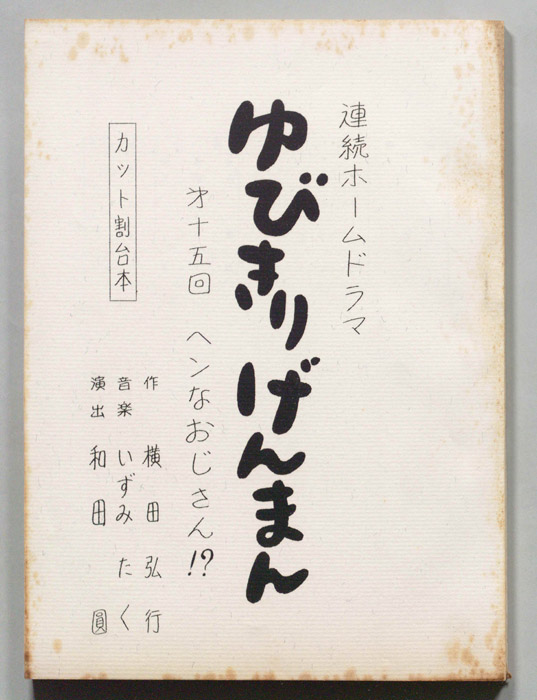 連続ホームドラマ
ゆびきりげんまん
才十五回 ヘンなおじさん!?
カット割台本
作 横田弘行
音楽 いずみたく
演出 和田圓